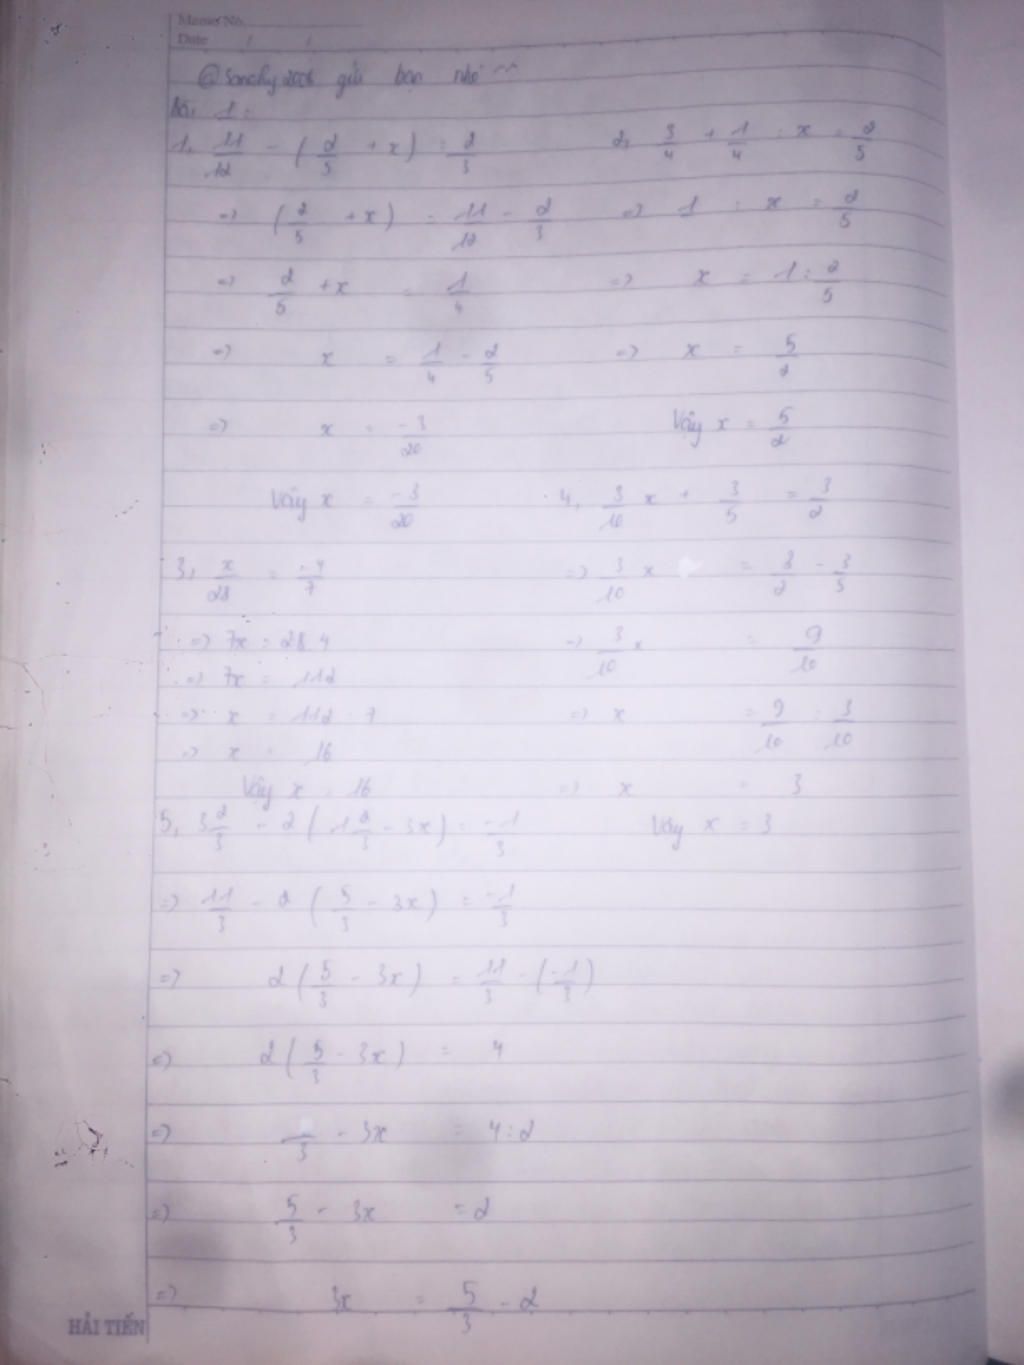 Memo No.
Date / /
@Sanchy2006 gửi bạn nhé ^^
Bài 1:
1, 11/12 - (2/5 + x) = 2/3
=> (2/5 + x) = 11/12 - 2/3
=> 2/5 + x = 1/4
=> x = 1/4 - 2/5
=> x = -3/20
Vậy x = -3/20
2, 3/4 + 1/4 : x = 2/5
=> 1 : x = 2/5
=> x = 1 : 2/5
=> x = 5/2
Vậy x = 5/2
3, x/28 = -4/7
=> 7x = 28.4
=> 7x = 112
=> x = 112 : 7
=> x = 16
Vậy x = 16
4, 3/10 x + 3/5 = 3/2
=> 3/10 x = 3/2 - 3/5
=> 3/10 x = 9/10
=> x = 9/10 : 3/10
=> x = 3
Vậy x = 3
5, 3 2/3 - 2 (1 2/3 - 3x) = -1/3
=> 11/3 - 2 (5/3 - 3x) = -1/3
=> 2 (5/3 - 3x) = 11/3 - (-1/3)
=> 2 (5/3 - 3x) = 4
=> /3 - 3x = 4 : 2
=> 5/3 - 3x = 2
=> 3x = 5/3 - 2
HẢI TIẾN